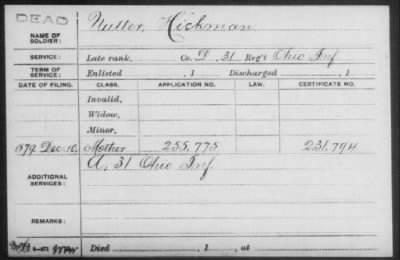 DEAD
NAME OF SOLDIER: Nutter, Hickman
SERVICE: Late rank, Co. D, 31 Reg't Ohio Inf
TERM OF SERVICE: Enlisted , 1 Discharged , 1
DATE OF FILING. CLASS. APPLICATION NO. LAW. CERTIFICATE NO.
Invalid,
Widow,
Minor,
1879 Dec. 10. Mother 255,775 231,794
ADDITIONAL SERVICES: A, 31 Ohio Inf.
REMARKS:
Died , 1 , at